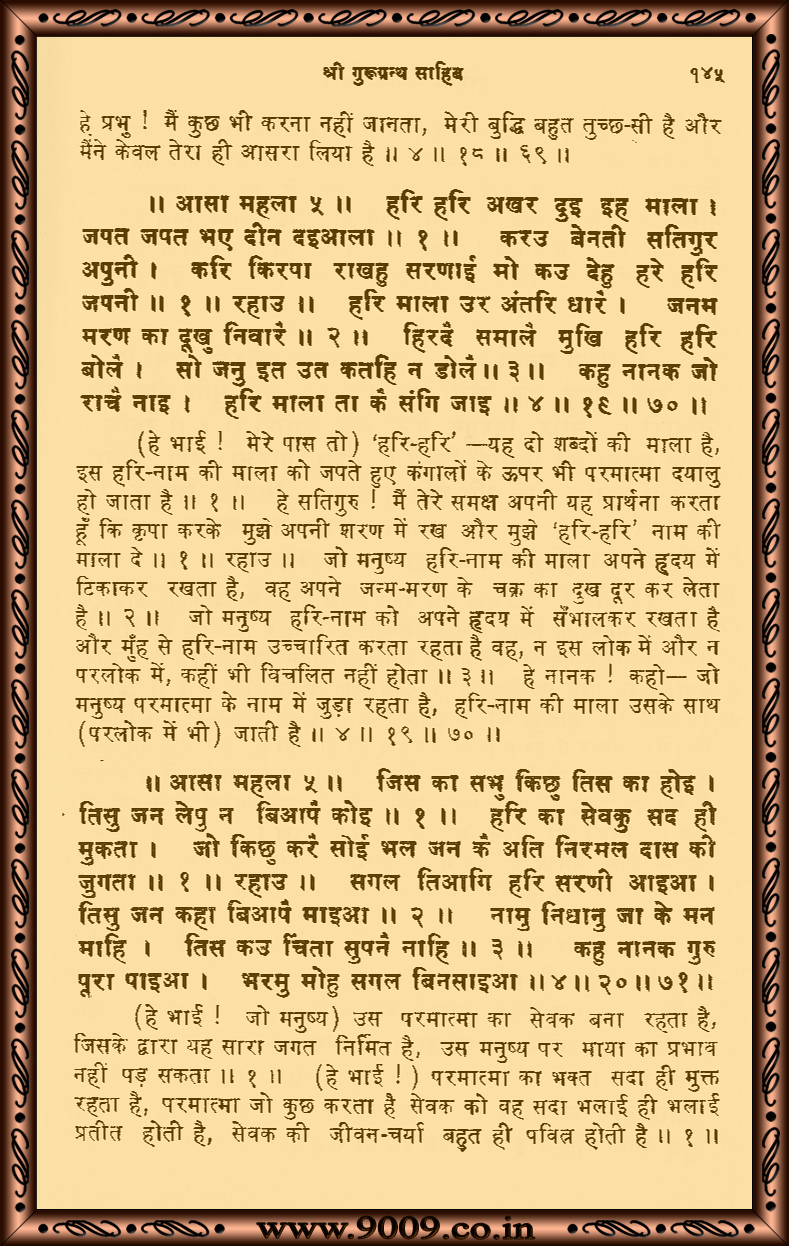 श्री गुरूग्रन्थ साहिब १४५
हे प्रभु ! मैं कुछ भी करना नहीं जानता, मेरी बुद्धि बहुत तुच्छ-सी है और
मैंने केवल तेरा ही आसरा लिया है ॥ ४ ॥ १८ ॥ ६९ ॥
॥ आसा महला ५ ॥ हरि हरि अखर दुइ इह माला ।
जपत जपत भए दीन दइआला ॥ १ ॥ करउ बेनती सतिगुर
अपुनी । करि किरपा राखहु सरणाई मो कउ देहु हरे हरि
जपनी ॥ १ ॥ रहाउ ॥ हरि माला उर अंतरि धारै । जनम
मरण का दूखु निवारै ॥ २ ॥ हिरदै समालै मुखि हरि हरि
बोलै । सो जनु इत उत कतहि न डोलै ॥ ३ ॥ कहु नानक जो
राचै नाइ । हरि माला ता कै संगि जाइ ॥ ४ ॥ १९ ॥ ७० ॥
(हे भाई ! मेरे पास तो) ‘हरि-हरि’ —यह दो शब्दों की माला है,
इस हरि-नाम की माला को जपते हुए कंगालों के ऊपर भी परमात्मा दयालु
हो जाता है ॥ १ ॥ हे सतिगुरु ! मैं तेरे समक्ष अपनी यह प्रार्थना करता
हूँ कि कृपा करके मुझे अपनी शरण में रख और मुझे ‘हरि-हरि’ नाम की
माला दे ॥ १ ॥ रहाउ ॥ जो मनुष्य हरि-नाम की माला अपने हृदय में
टिकाकर रखता है, वह अपने जन्म-मरण के चक्र का दुख दूर कर लेता
है ॥ २ ॥ जो मनुष्य हरि-नाम को अपने हृदय में सँभालकर रखता है
और मुँह से हरि-नाम उच्चारित करता रहता है वह, न इस लोक में और न
परलोक में, कहीं भी विचलित नहीं होता ॥ ३ ॥ हे नानक ! कहो— जो
मनुष्य परमात्मा के नाम में जुड़ा रहता है, हरि-नाम की माला उसके साथ
(परलोक में भी) जाती है ॥ ४ ॥ १९ ॥ ७० ॥
॥ आसा महला ५ ॥ जिस का सभु किछु तिस का होइ ।
तिसु जन लेपु न बिआपै कोइ ॥ १ ॥ हरि का सेवकु सद ही
मुकता । जो किछु करै सोई भल जन कै अति निरमल दास की
जुगता ॥ १ ॥ रहाउ ॥ सगल तिआगि हरि सरणी आइआ ।
तिसु जन कहा बिआपै माइआ ॥ २ ॥ नामु निधानु जा के मन
माहि । तिस कउ चिंता सुपनै नाहि ॥ ३ ॥ कहु नानक गुरु
पूरा पाइआ । भरमु मोहु सगल बिनसाइआ ॥ ४ ॥ २० ॥ ७१ ॥
(हे भाई ! जो मनुष्य) उस परमात्मा का सेवक बना रहता है,
जिसके द्वारा यह सारा जगत निर्मित है, उस मनुष्य पर माया का प्रभाव
नहीं पड़ सकता ॥ १ ॥ (हे भाई ! ) परमात्मा का भक्त सदा ही मुक्त
रहता है, परमात्मा जो कुछ करता है सेवक को वह सदा भलाई ही भलाई
प्रतीत होती है, सेवक की जीवन-चर्या बहुत ही पवित्र होती है ॥ १ ॥
www.9009.co.in